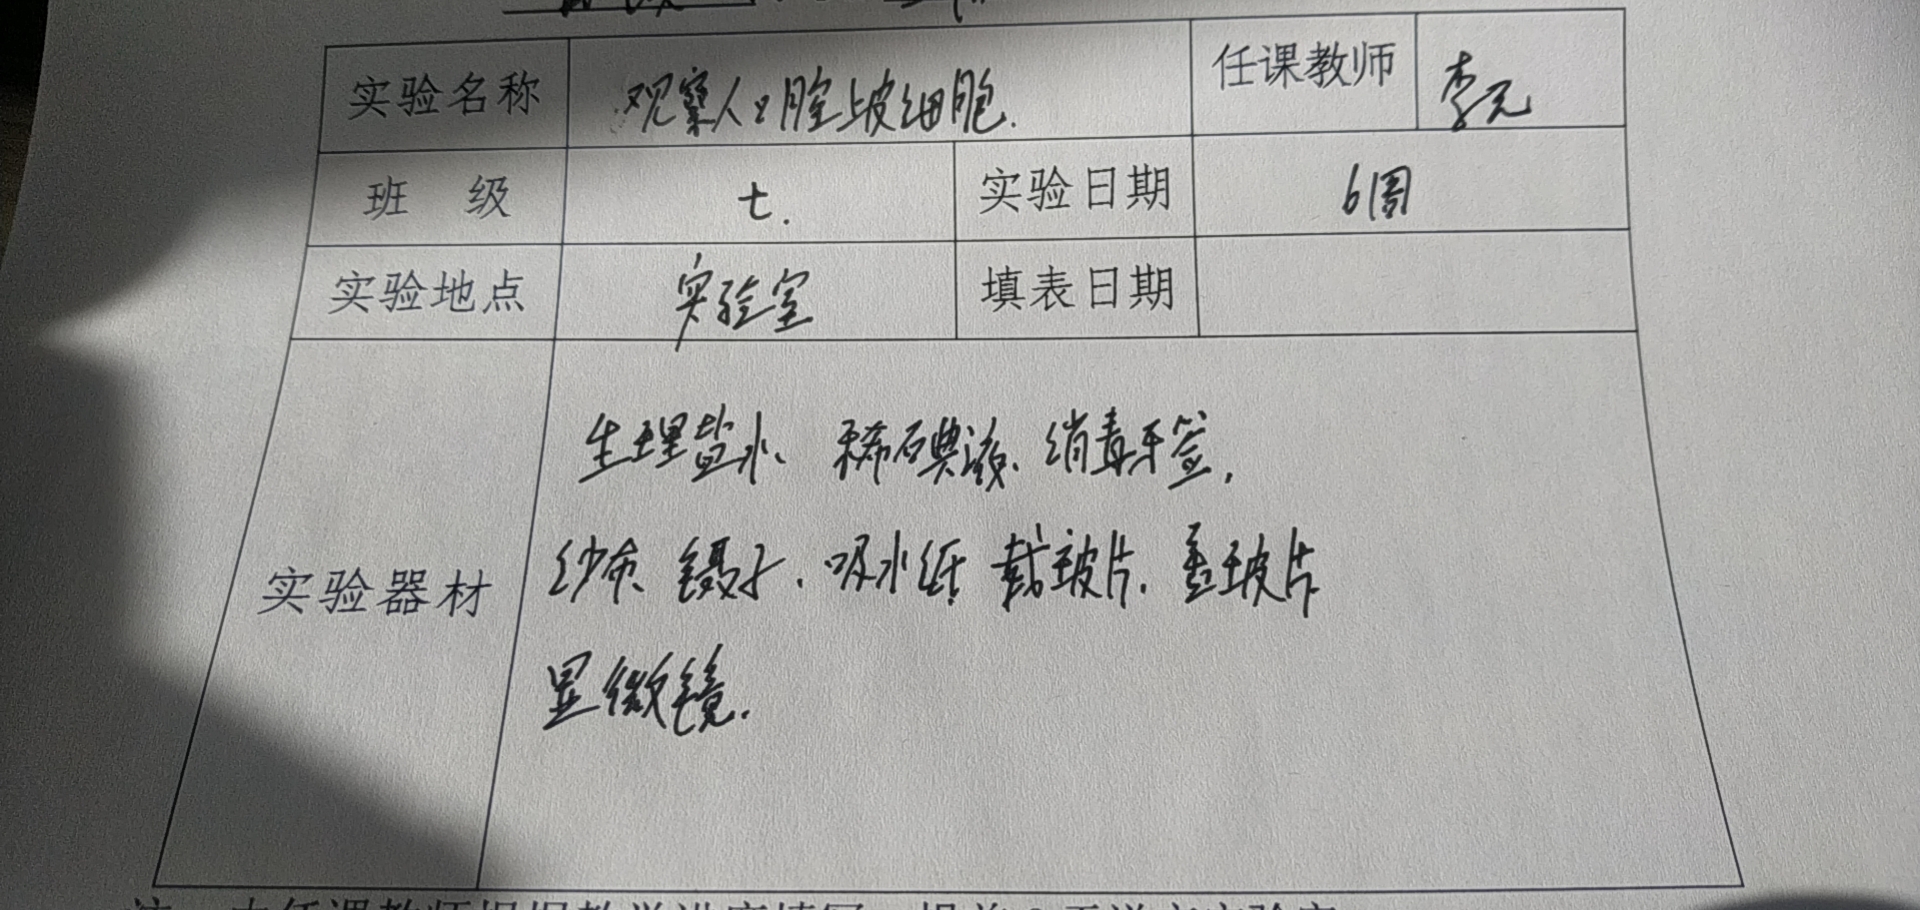 实验名称 观察人口腔上皮细胞. 任课教师 李元
班 级 七. 实验日期 6周
实验地点 实验室 填表日期
生理盐水、稀碘液、消毒牙签,
实验器材 纱布、镊子、吸水纸 载玻片、盖玻片
显微镜.